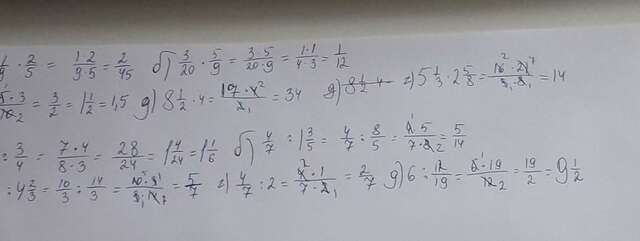 1/9 · 2/5 = 1·2/9·5 = 2/45 б) 3/20 · 5/9 = 3·5/20·9 = 1·1/4·3 = 1/12
· 3/2 = 3/2 = 1 1/2 = 1,5 д) 8 1/2 · 4 = 17·4²/2₁ = 34 г) 5 1/3 · 2 5/8 = 16²·21⁷/3₁·8₁ = 14
: 3/4 = 7·4/8·3 = 28/24 = 1 4/24 = 1 1/6 б) 4/7 : 1 3/5 = 4/7 : 8/5 = 4¹·5/7·8₂ = 5/14
: 4 2/3 = 10/3 : 14/3 = 10⁵·3¹/3₁·14₇ = 5/7 г) 4/7 : 2 = 4²·1/7·2₁ = 2/7 д) 6 : 12/19 = 6¹·19/12₂ = 19/2 = 9 1/2